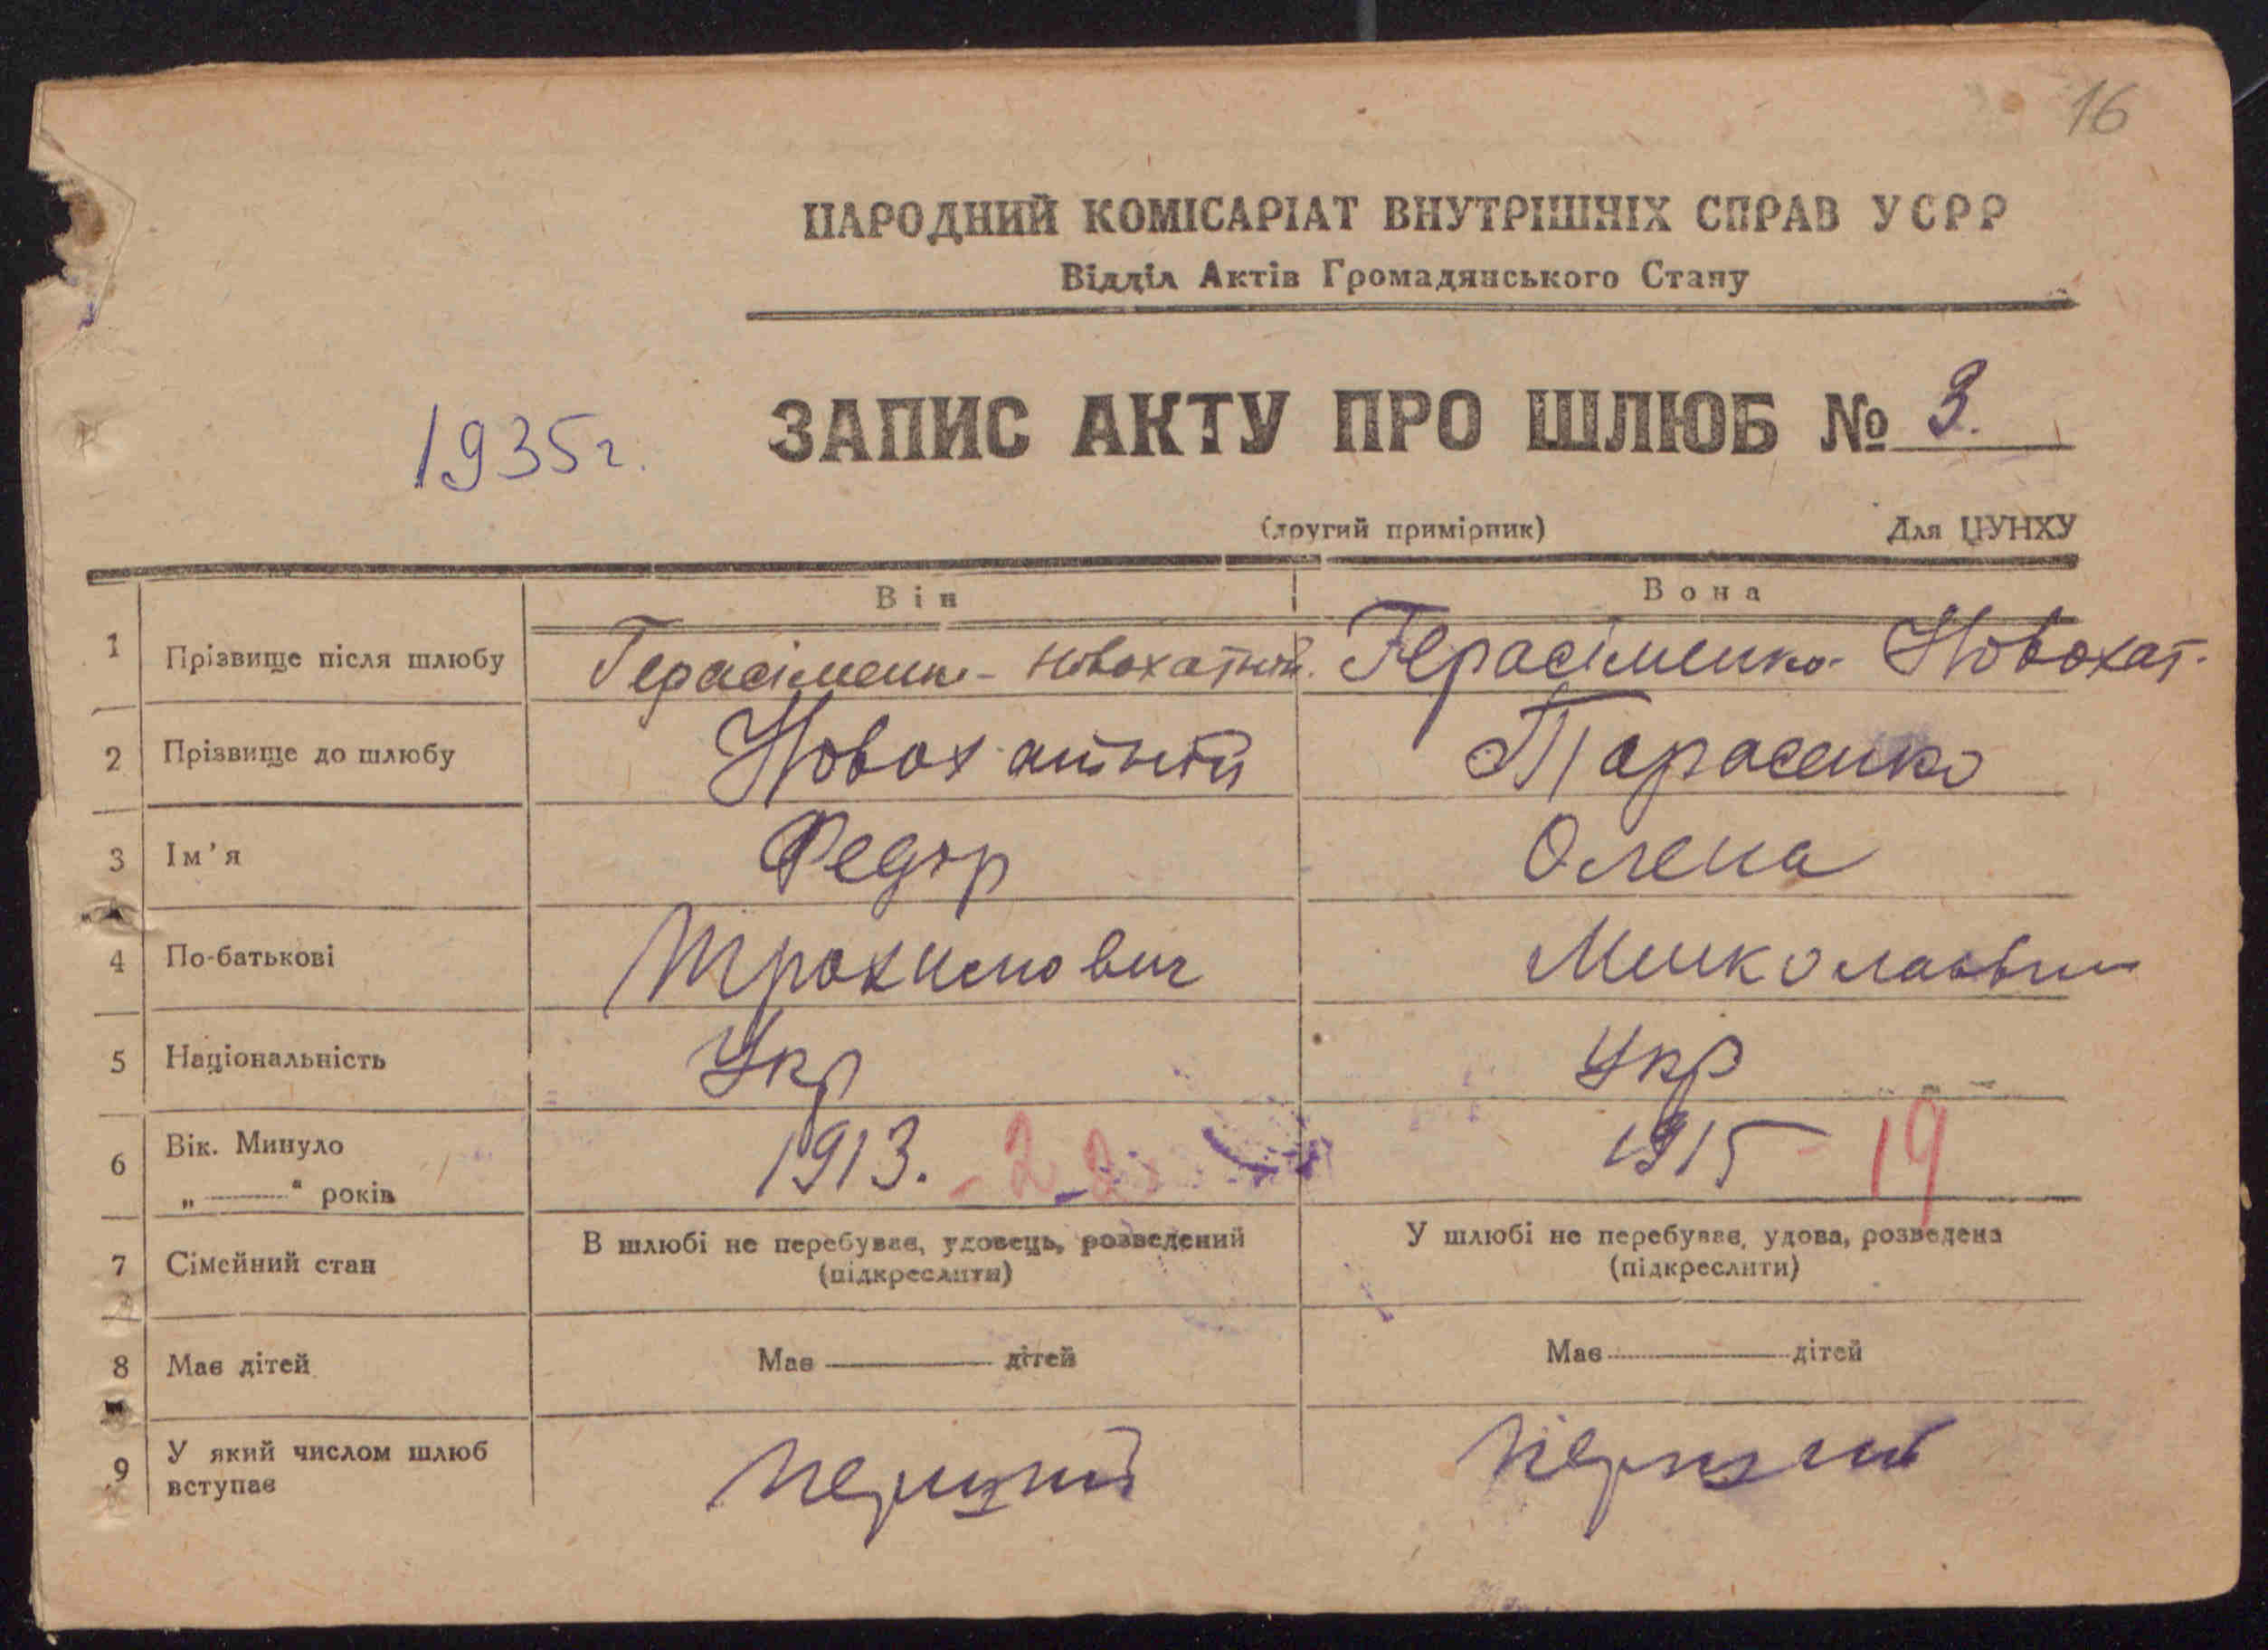 16
НАРОДНИЙ КОМІСАРІАТ ВНУТРІШНІХ СПРАВ УСРР
Відділ Актів Громадянського Стану
1935 г.
ЗАПИС АКТУ ПРО ШЛЮБ № 3.
(другий примірник) Для ЦУНХУ
Він Вона
1 Прізвище після шлюбу Герасіменко - Новохатній. Герасіменко - Новохат.
2 Прізвище до шлюбу Новохатній Тарасенко
3 Ім'я Федор Олена
4 По-батькові Трохимович Миколаевна
5 Національність Укр Укр
6 Вік. Минуло 1913. - 22 1915 - 19
„ — “ років
7 Сімейний стан В шлюбі не перебуває, удовець, розведений У шлюбі не перебуває, удова, розведена
(підкреслити) (підкреслити)
8 Має дітей Має — дітей Має — дітей
9 У який числом шлюб вступає перший перший